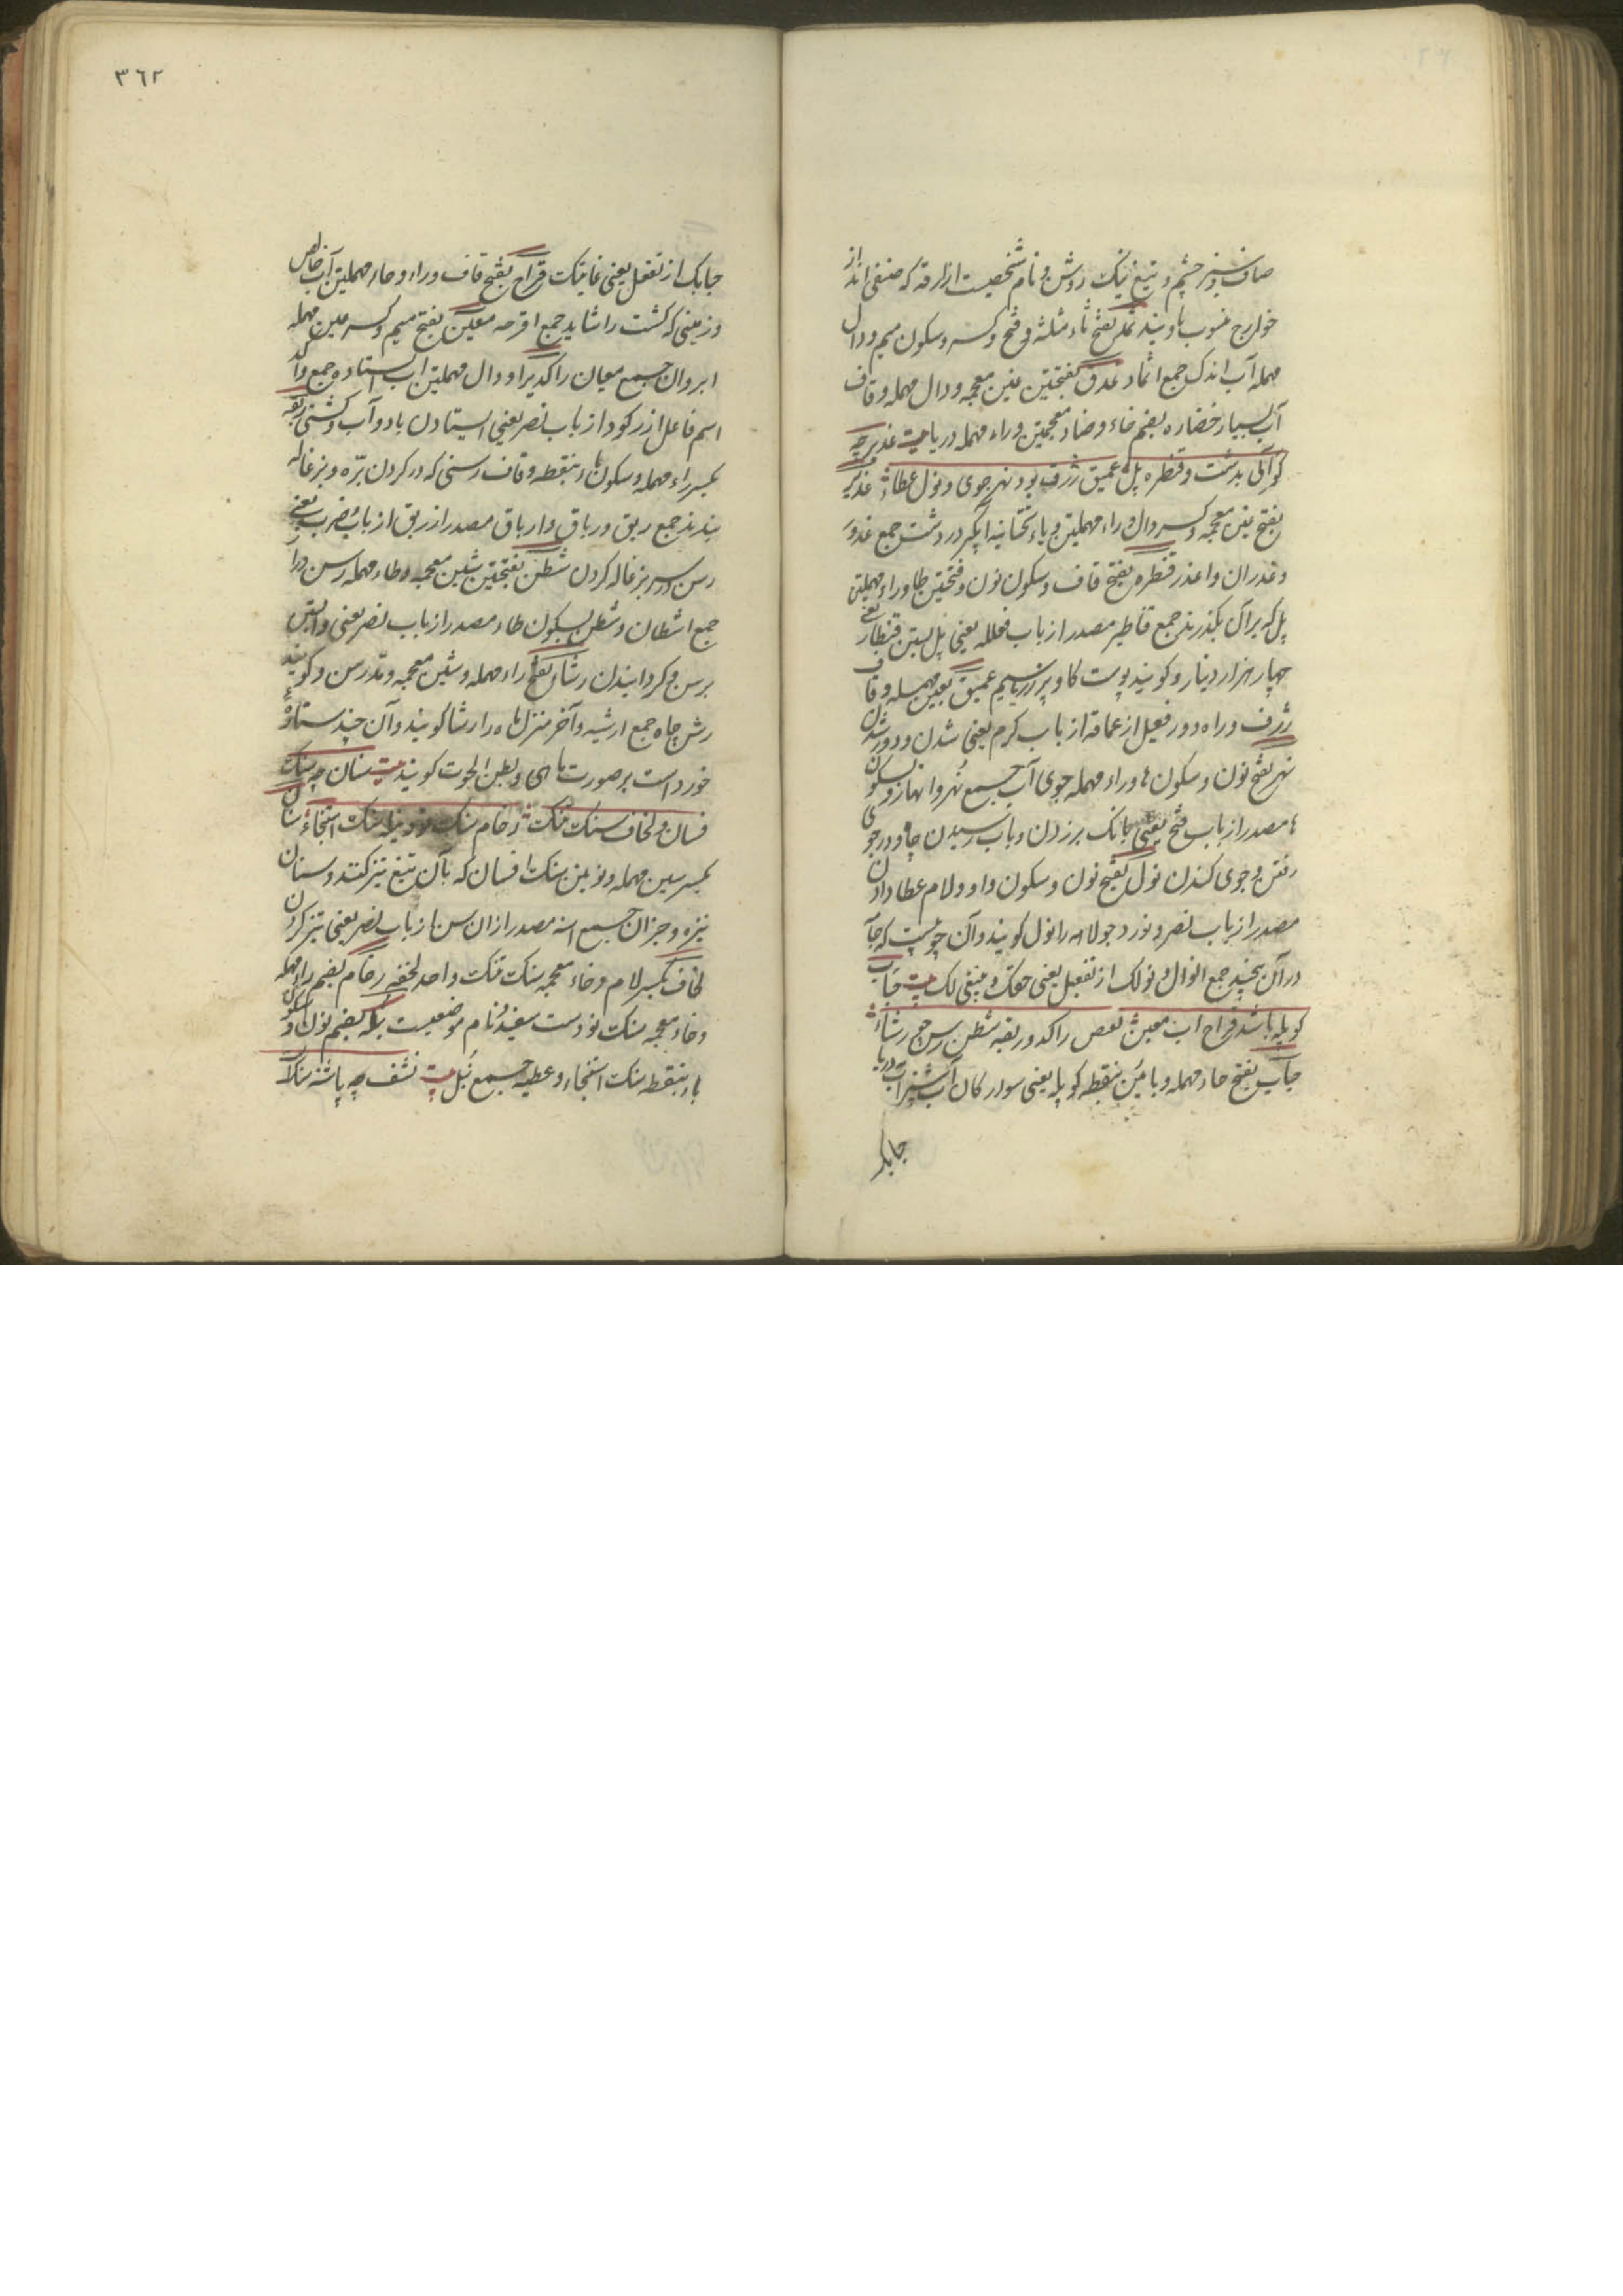 صاف و سبز چشم و تیغ نیک روشن و نام شخصیست ازارقه که صنفی اند از
خوارج منسوب باویند ثمد بفتح ثاء مثلثه و فتح و کسر و سکون میم و دال
مهمله آب اندک جمع اثماد غدق بفتحتین غین معجمه و دال مهمله و قاف
آب بسیار خضاره بضم خاء و ضاد معجمتین و راء مهمله دریا بیت غدیر چه
کو آبی بدشت و قنطره پل عمیق ژرف بود نهر جوی و نول عطاء غدیر
بفتح غین معجمه و کسر دال و راء مهملتین و یاء تحتانیه آبگیر در دشت جمع غدور
و غدران و اغدر قنطره بفتح قاف و سکون نون و فتحتین طا و راء مهملتین
پل که بر آن بگذرند جمع قناطیر مصدر از باب فعلله یعنی پل بستن قنطار یعنی
چهار هزار دینار و گویند پوست گاو پر زر یا سیم عمیق بعین مهمله و قاف
ژرف و راه دور فعیل از عماقه از باب کرم یعنی شدن و دور شدن
نهر بفتح نون و سکون ها و راء مهمله جوی آب جمع نهر و انهار و بسکون
ها مصدر از باب فتح یعنی بانک بر زدن و بآب رسیدن چاه و در جوی
رفتن و جوی کندن نول بفتح نون و سکون واو و لام عطا دادن
مصدر از باب نصر و نورد جولاه را نول گویند و آن چوبیست که جامه
در آن پیچند جمع انوال و نولک از تفعیل یعنی حقک و ینبغی لک بیت حباب
کوپله باشد قراح آب معین بعض راکد و ربقه شطن رسن چو رشاء
حباب بفتح حاء مهمله و بائین بنقطه کوپله یعنی سوار کان آب شیر آب دریا
حبابک
٣٦٢
حبابک از تفعل یعنی غایتک قراح بفتح قاف و راء و حاء مهملتین آب خالص
و زمینی که کشت را شاید جمع اقرحه معین بفتح میم و کسر عین مهمله
آب روان جمع معیان راکد براء و دال مهملتین آب ایستاده جمع رواکد
اسم فاعل از رکود از باب نصر یعنی ایستادن باد و آب و کشتی ربقه
بکسر راء مهمله و سکون باء بنقطه و قاف رسنی که در گردن بره و بزغاله
بندند جمع ربق و رباق و ارباق مصدر از ربق از باب ضرب یعنی
رسن در سر بزغاله کردن شطن بفتحتین شین معجمه و طاء مهمله رسن دراز
جمع اشطان و شطن بسکون طاء مصدر از باب نصر یعنی وابستن
برسن و گردانیدن رشا بفتح راء مهمله و شین معجمه و مد رسن و گویند
رشن چاه جمع ارشیه و آخر منزل ماه را رشا گویند و آن چند ستاره
خورد است بر صورت ماهی و بطن الحوت گویند بیت سنان چه سنک
فسان و لخاف سنک تنک رخام سنک نود نبله سنک استنجاء سنان
بکسر سین مهمله و نونین سنک افسان که بآن تیغ تیز کنند و سنان
نیزه و جز آن جمع اسنه مصدر از ان سن از باب نصر یعنی تیز کردن
لخاف بکسر لام و خاء معجمه سنک تنک واحد لخفه رخام بضم راء مهمله
و خاء معجمه سنک نود ست سفید و نام موضعیست نبله بضم نون و سکون
باء بنقطه سنک استنجاء و عطیه جمع نبل بیت نشف چه پاشنه سنک